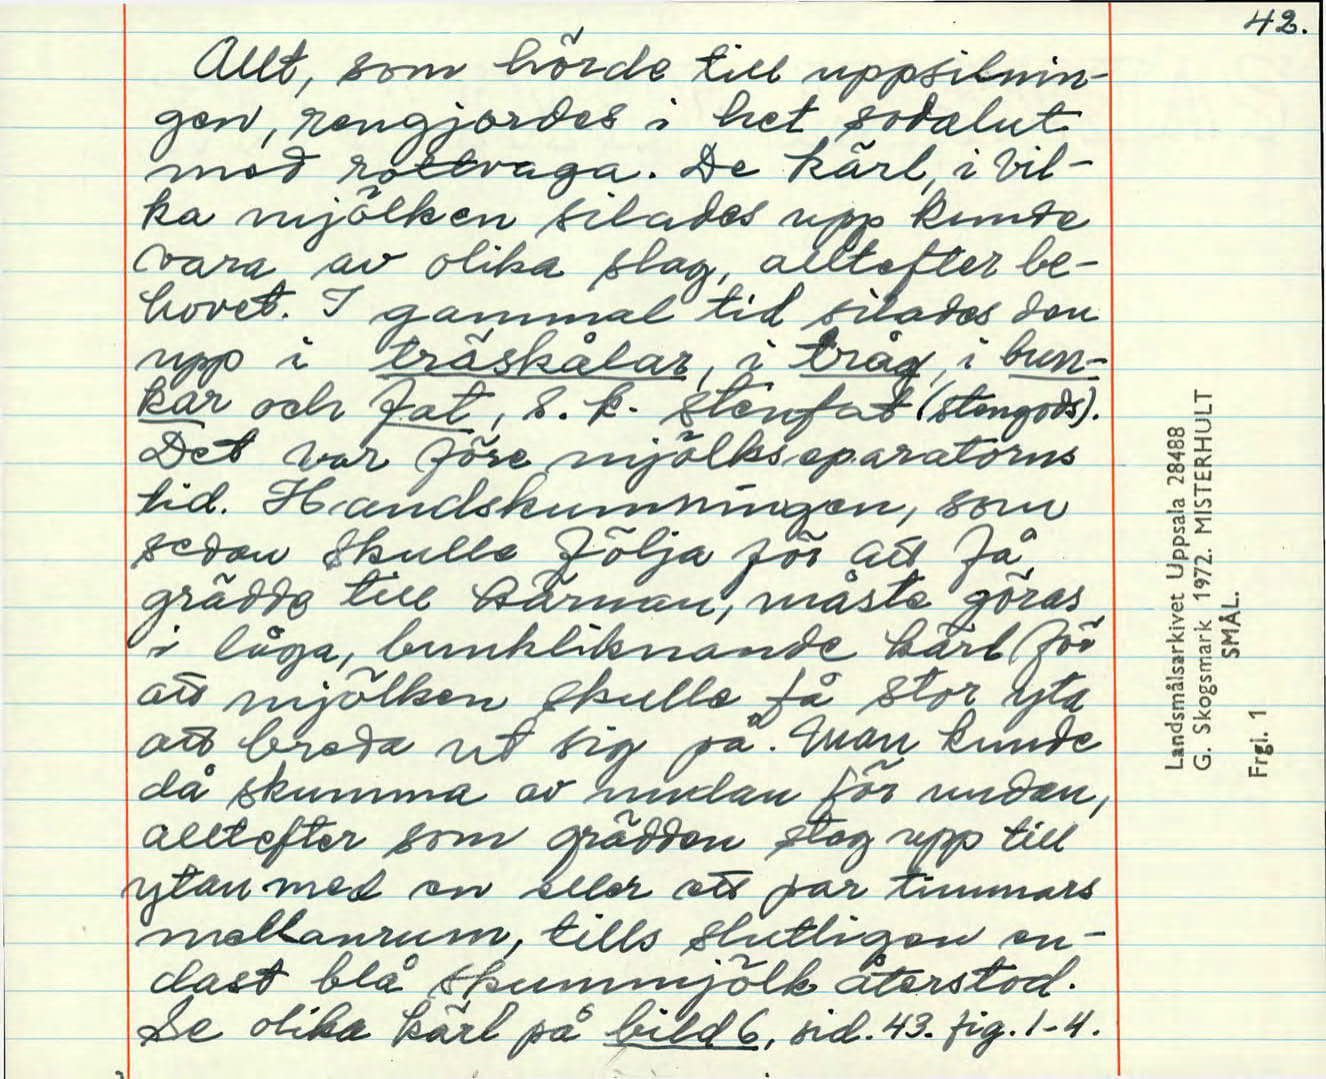 42.
Allt, som hörde till uppsilnin-
gen, rengjordes i het sodalut
med rottvaga. De kärl, i vil-
ka mjölken silades upp kunde
vara av olika slag, alltefter be-
hovet. I gammal tid silades den
upp i träskålar, i tråg, i bun-
kar och fat, s.k. stenfat (stengods).
Det var före mjölkseparatorns
tid. Handskumningen, som
sedan skulle följa för att få
grädde till kärnan, måste göras
i låga, bunkliknande kärl för
att mjölken skulle få stor yta
att breda ut sig på. Man kunde
då skumma av undan för undan,
alltefter som grädden steg upp till
ytan med en eller ett par timmars
mellanrum, tills slutligen en-
dast blå skummjölk återstod.
Se olika kärl på bild 6, sid. 43. fig. 1-4.
Landsmålsarkivet Uppsala 28488
G. Skogsmark 1972. MISTERHULT
SMÅL.
Frgl. 1